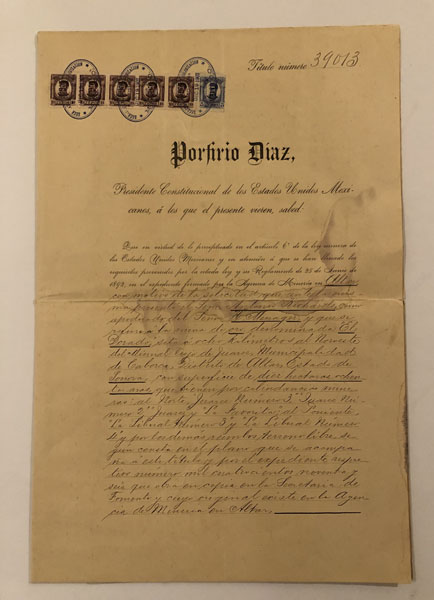 Título número 39013
Porfirio Díaz,
Presidente Constitucional de los Estados Unidos Mexi-
canos, á los que el presente vieren, sabed:
Que en virtud de lo preceptuado en el artículo 6º de la ley minera de
los Estados Unidos Mexicanos y en atención á que se han llenado los
requisitos prevenidos por la citada ley y su Reglamento de 25 de Junio de
1892, en el expediente formado por la Agencia de Minería en Altar
con motivo de la solicitud que
apoderado del Señor y que se
refiere á la mina de oro denominada El
Dorado, sita á ocho kilómetros al Noroeste
del Mineral Viejo de Juarez Municipalidad
de Caborca, Distrito de Altar Estado de
Sonora, con superficie de diez hectaras ochen
ta aras que tienen por colindancias mine
ras: al Norte Juarez Número 3, Juarez Nú
mero 2, Juarez y La Secretaría de Fomento,
La Libertad Número 3 y La Libertad Número
4 y por los demás rumbos terreno libre se-
gún consta en el plano que se acompa
ña á este título y por el expediente respec
tivo número mil cuatrocientos noventa y
seis que obra en copia en la Secretaría de
Fomento y cuyo original existe en la Agen
cia de Minería en Altar.